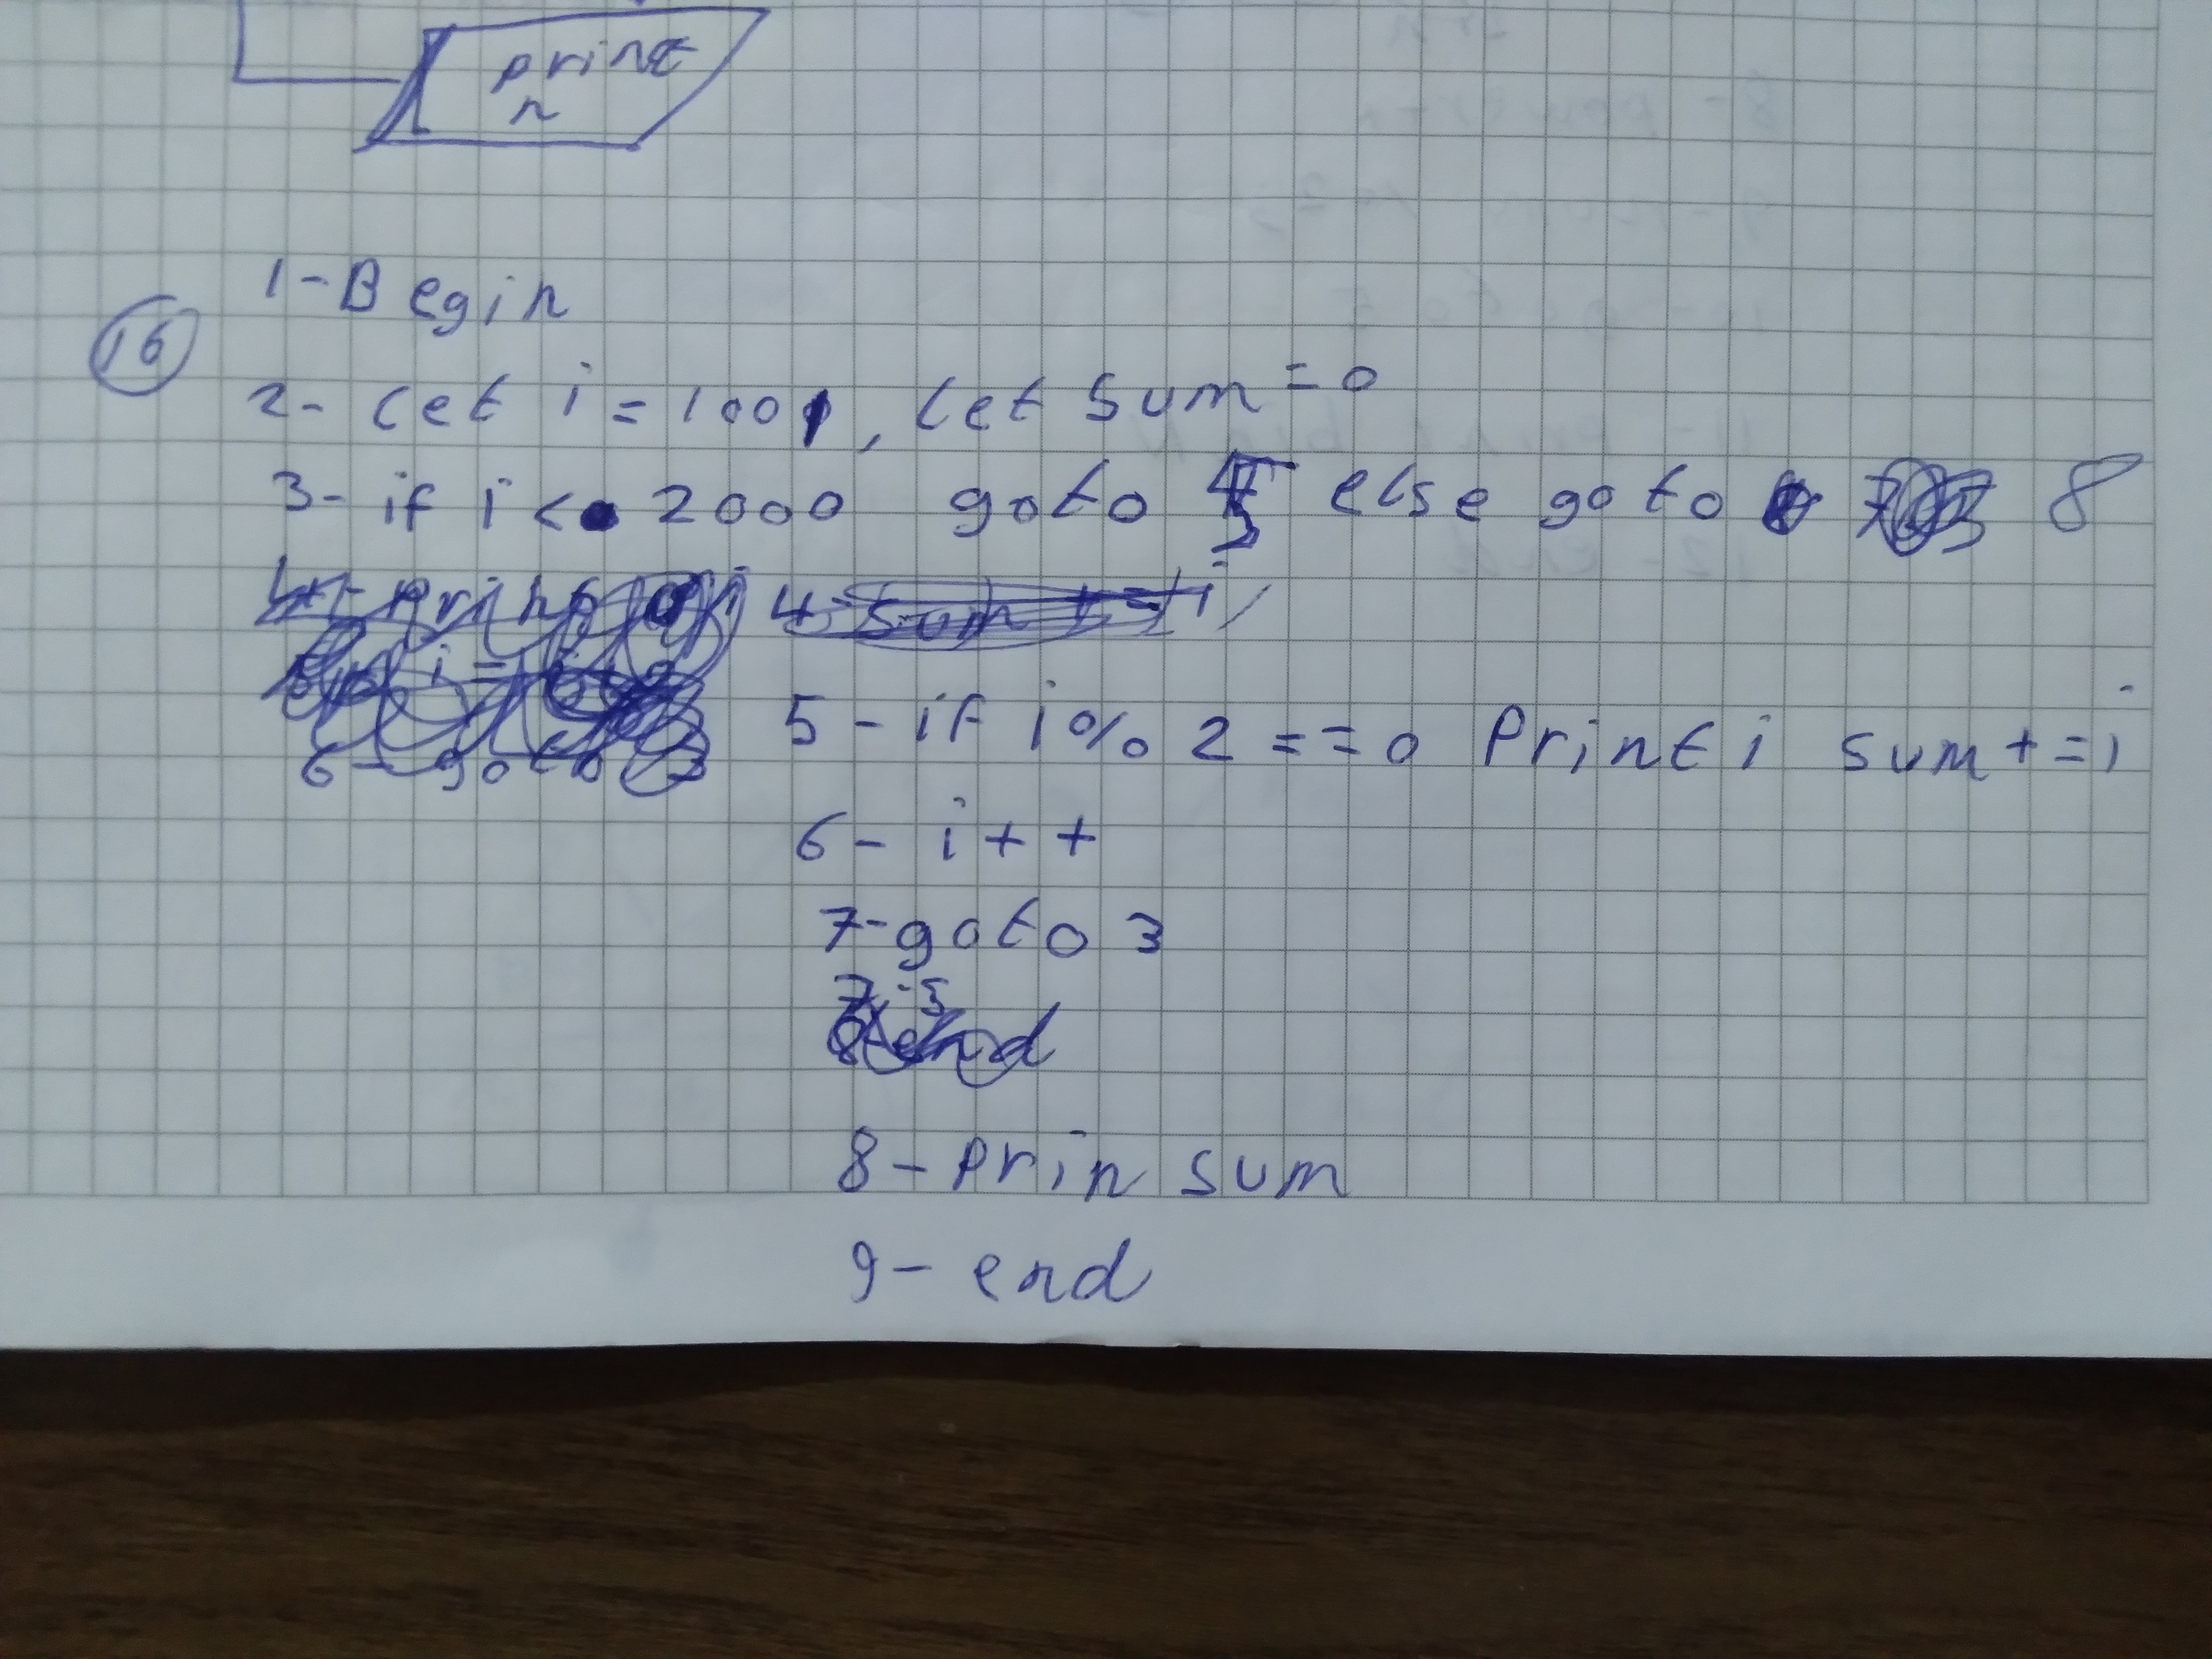 print
n
16
1-Begin
2- let i = 1001, let sum = 0
3- if i < 2000 goto 5 else goto 8
5 - if i % 2 == 0 Print i sum += i
6 - i++
7-goto 3
8 - prin sum
9 - end